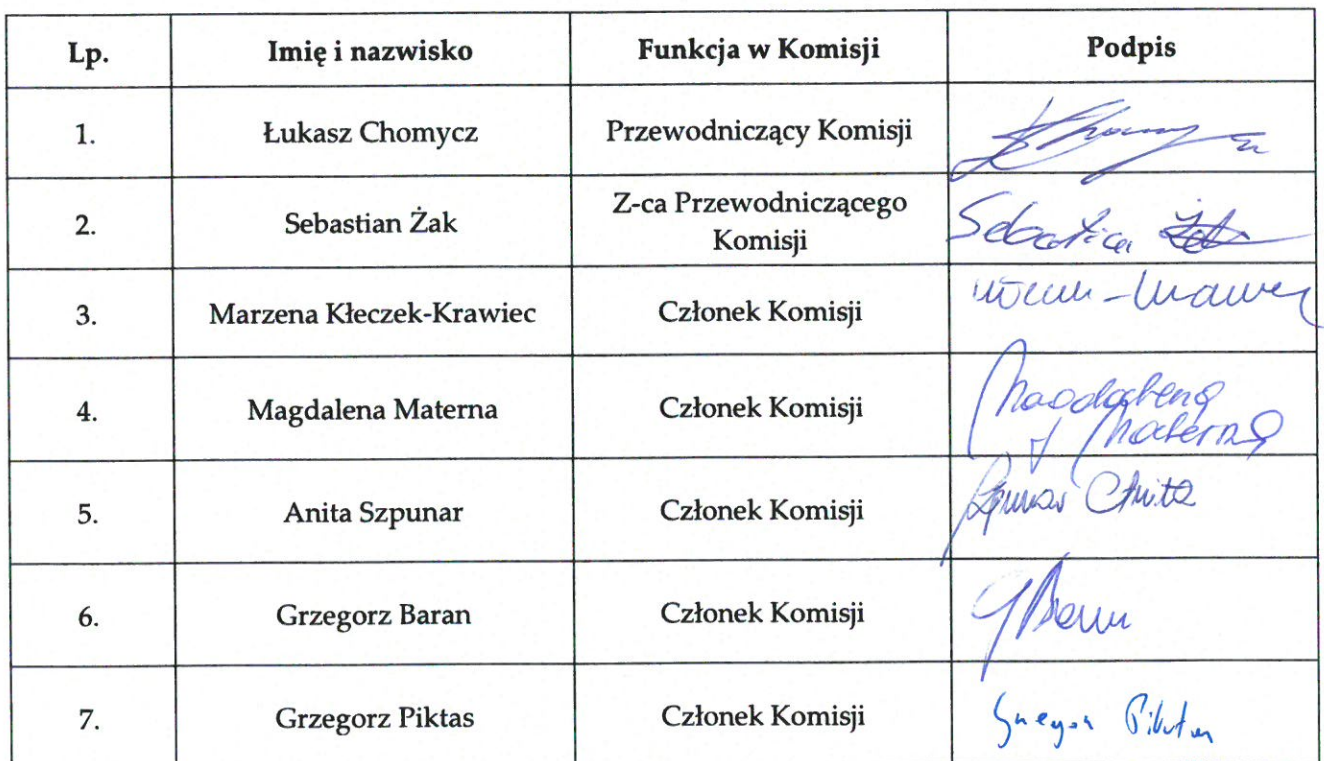 Lp. Imię i nazwisko Funkcja w Komisji Podpis
1. Łukasz Chomycz Przewodniczący Komisji
2. Sebastian Żak Z-ca Przewodniczącego
Komisji Sebastian Żak
3. Marzena Kłeczek-Krawiec Członek Komisji
4. Magdalena Materna Członek Komisji Magdalena
Materna
5. Anita Szpunar Członek Komisji Szpunar Anita
6. Grzegorz Baran Członek Komisji G Baran
7. Grzegorz Piktas Członek Komisji Grzegorz Piktas